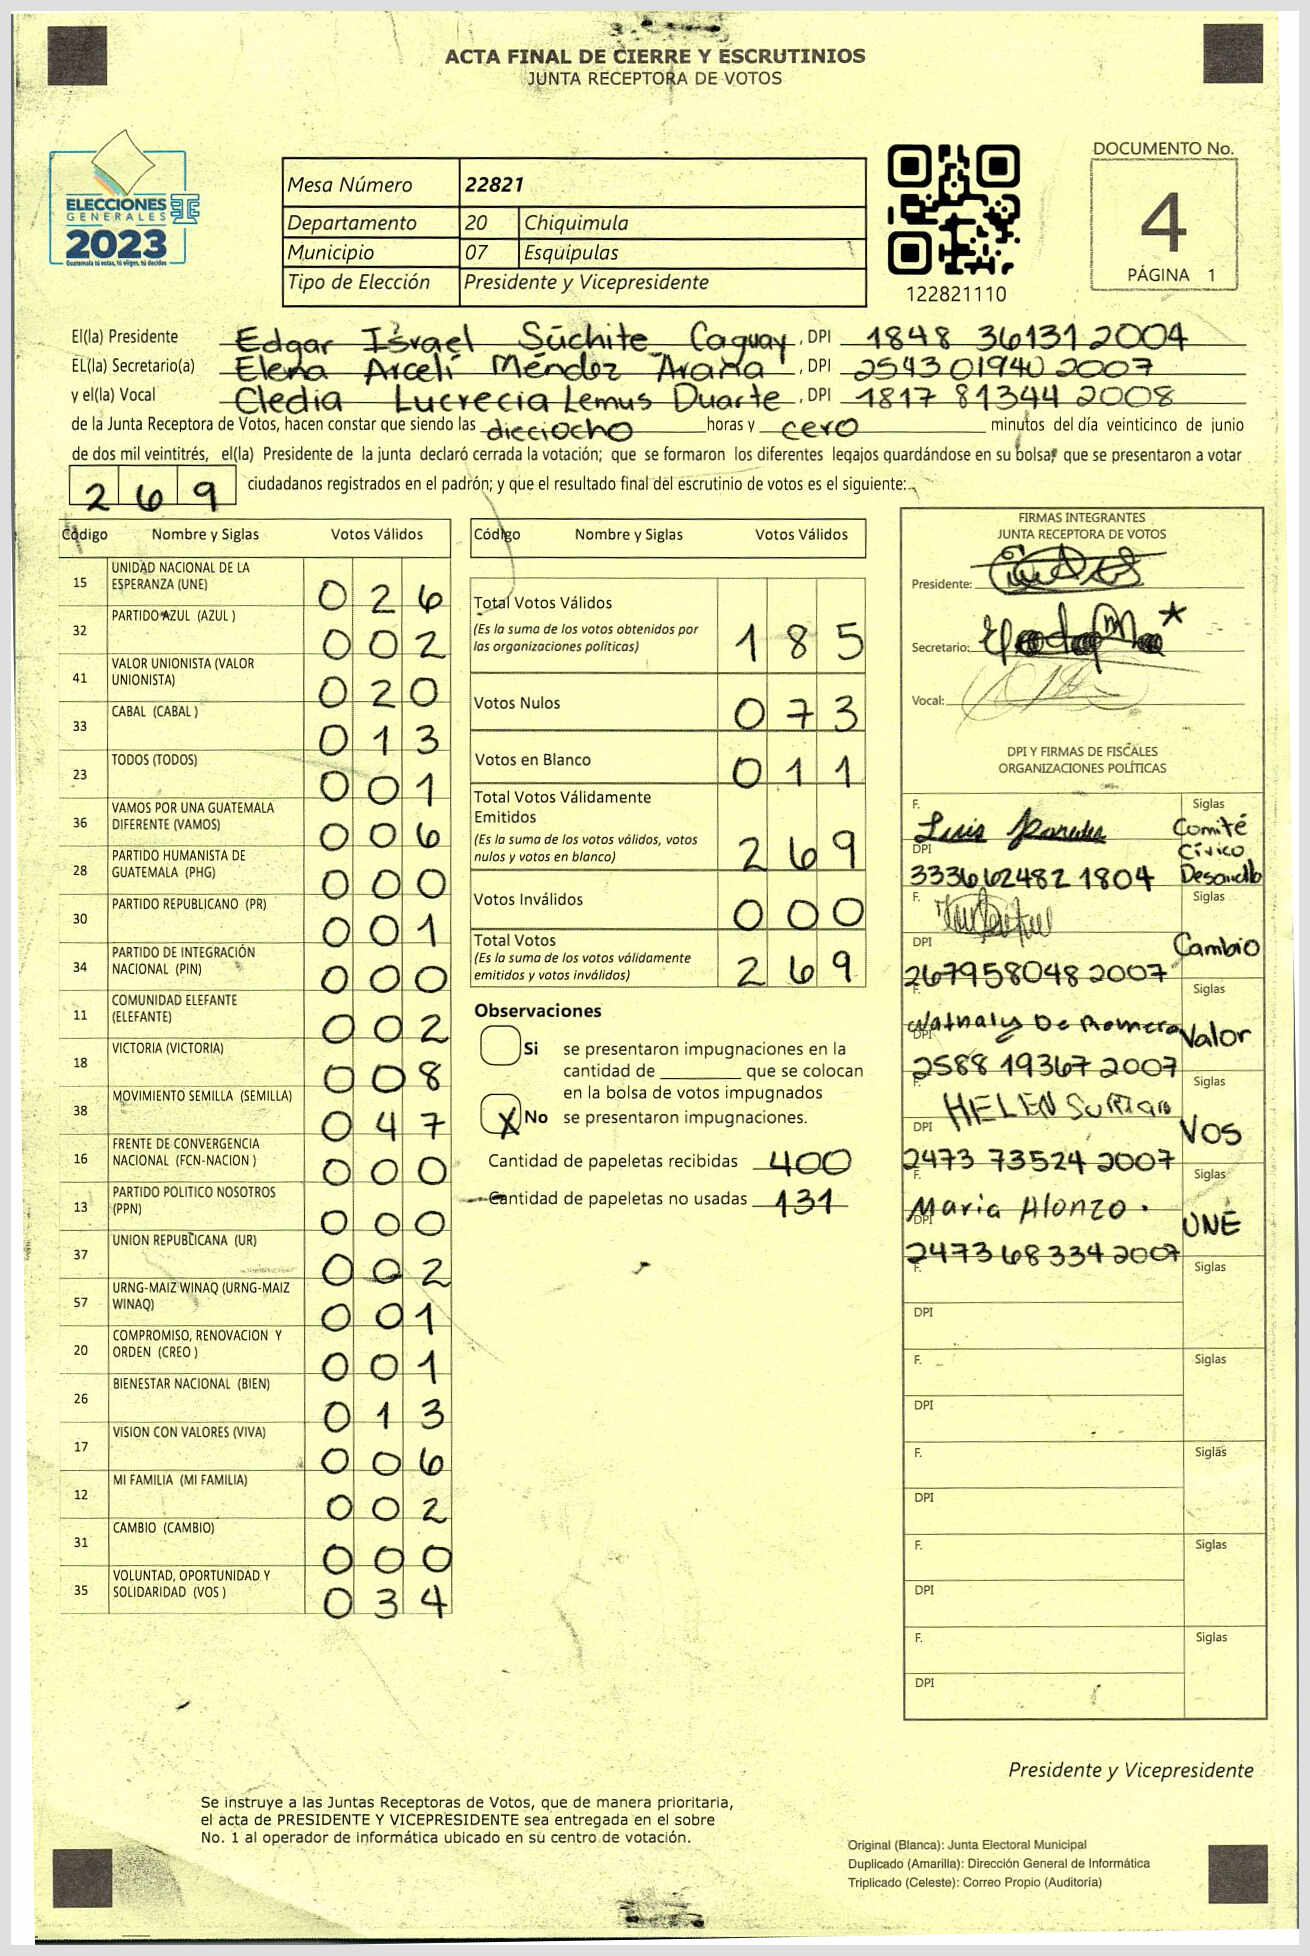 ACTA FINAL DE CIERRE Y ESCRUTINIOS
JUNTA RECEPTORA DE VOTOS
ELECCIONES
GENERALES
2023
Guatemala tú votas, tú eliges, tú decides
Mesa Número 22821
Departamento 20 Chiquimula
Municipio 07 Esquipulas
Tipo de Elección Presidente y Vicepresidente
122821110
DOCUMENTO No.
4
PÁGINA 1
El(la) Presidente Edgar Israel Súchite Caguay, DPI 1848 36131 2004
EL(la) Secretario(a) Elena Arcelí Méndez Arana, DPI 2543 01940 2007
y el(la) Vocal Cledia Lucrecia Lemus Duarte, DPI 1817 81344 2008
de la Junta Receptora de Votos, hacen constar que siendo las dicciocho horas y cero minutos del día veinticinco de junio
de dos mil veintitrés, el(la) Presidente de la junta declaró cerrada la votación; que se formaron los diferentes legajos guardándose en su bolsa; que se presentaron a votar
269 ciudadanos registrados en el padrón; y que el resultado final del escrutinio de votos es el siguiente:
Código Nombre y Siglas Votos Válidos
15 UNIDAD NACIONAL DE LA ESPERANZA (UNE) 026
32 PARTIDO AZUL (AZUL ) 002
41 VALOR UNIONISTA (VALOR UNIONISTA) 020
33 CABAL (CABAL ) 013
23 TODOS (TODOS) 001
36 VAMOS POR UNA GUATEMALA DIFERENTE (VAMOS) 006
28 PARTIDO HUMANISTA DE GUATEMALA (PHG) 000
30 PARTIDO REPUBLICANO (PR) 001
34 PARTIDO DE INTEGRACIÓN NACIONAL (PIN) 000
11 COMUNIDAD ELEFANTE (ELEFANTE) 002
18 VICTORIA (VICTORIA) 008
38 MOVIMIENTO SEMILLA (SEMILLA) 047
16 FRENTE DE CONVERGENCIA NACIONAL (FCN-NACION ) 000
13 PARTIDO POLITICO NOSOTROS (PPN) 000
37 UNION REPUBLICANA (UR) 002
57 URNG-MAIZ WINAQ (URNG-MAIZ WINAQ) 001
20 COMPROMISO, RENOVACION Y ORDEN (CREO ) 001
26 BIENESTAR NACIONAL (BIEN) 013
17 VISION CON VALORES (VIVA) 006
12 MI FAMILIA (MI FAMILIA) 002
31 CAMBIO (CAMBIO) 000
35 VOLUNTAD, OPORTUNIDAD Y SOLIDARIDAD (VOS ) 034
Código Nombre y Siglas Votos Válidos
Total Votos Válidos
(Es la suma de los votos obtenidos por
las organizaciones políticas) 185
Votos Nulos 073
Votos en Blanco 011
Total Votos Válidamente
Emitidos
(Es la suma de los votos válidos, votos
nulos y votos en blanco) 269
Votos Inválidos 000
Total Votos
(Es la suma de los votos válidamente
emitidos y votos inválidos) 269
Observaciones
Si se presentaron impugnaciones en la
cantidad de ________ que se colocan
en la bolsa de votos impugnados
X No se presentaron impugnaciones.
Cantidad de papeletas recibidas 400
Cantidad de papeletas no usadas 131
FIRMAS INTEGRANTES
JUNTA RECEPTORA DE VOTOS
Presidente:
Secretario:
Vocal:
DPI Y FIRMAS DE FISCALES
ORGANIZACIONES POLÍTICAS
F. Luis Paredes Siglas Comité Cívico Desarrollo
DPI 3336624821804
F. Siglas Cambio
DPI 267958048 2007
F. Nathaly De Romero Siglas Valor
DPI 2588 19367 2007
F. HELEN Siglas VOS
DPI 2473 73524 2007
F. Maria Alonzo. Siglas UNE
DPI 2473 68334 2007
F. Siglas
DPI
F. Siglas
DPI
F. Siglas
DPI
F. Siglas
DPI
F. Siglas
DPI
Presidente y Vicepresidente
Se instruye a las Juntas Receptoras de Votos, que de manera prioritaria,
el acta de PRESIDENTE Y VICEPRESIDENTE sea entregada en el sobre
No. 1 al operador de informática ubicado en su centro de votación.
Original (Blanca): Junta Electoral Municipal
Duplicado (Amarilla): Dirección General de Informática
Triplicado (Celeste): Correo Propio (Auditoría)